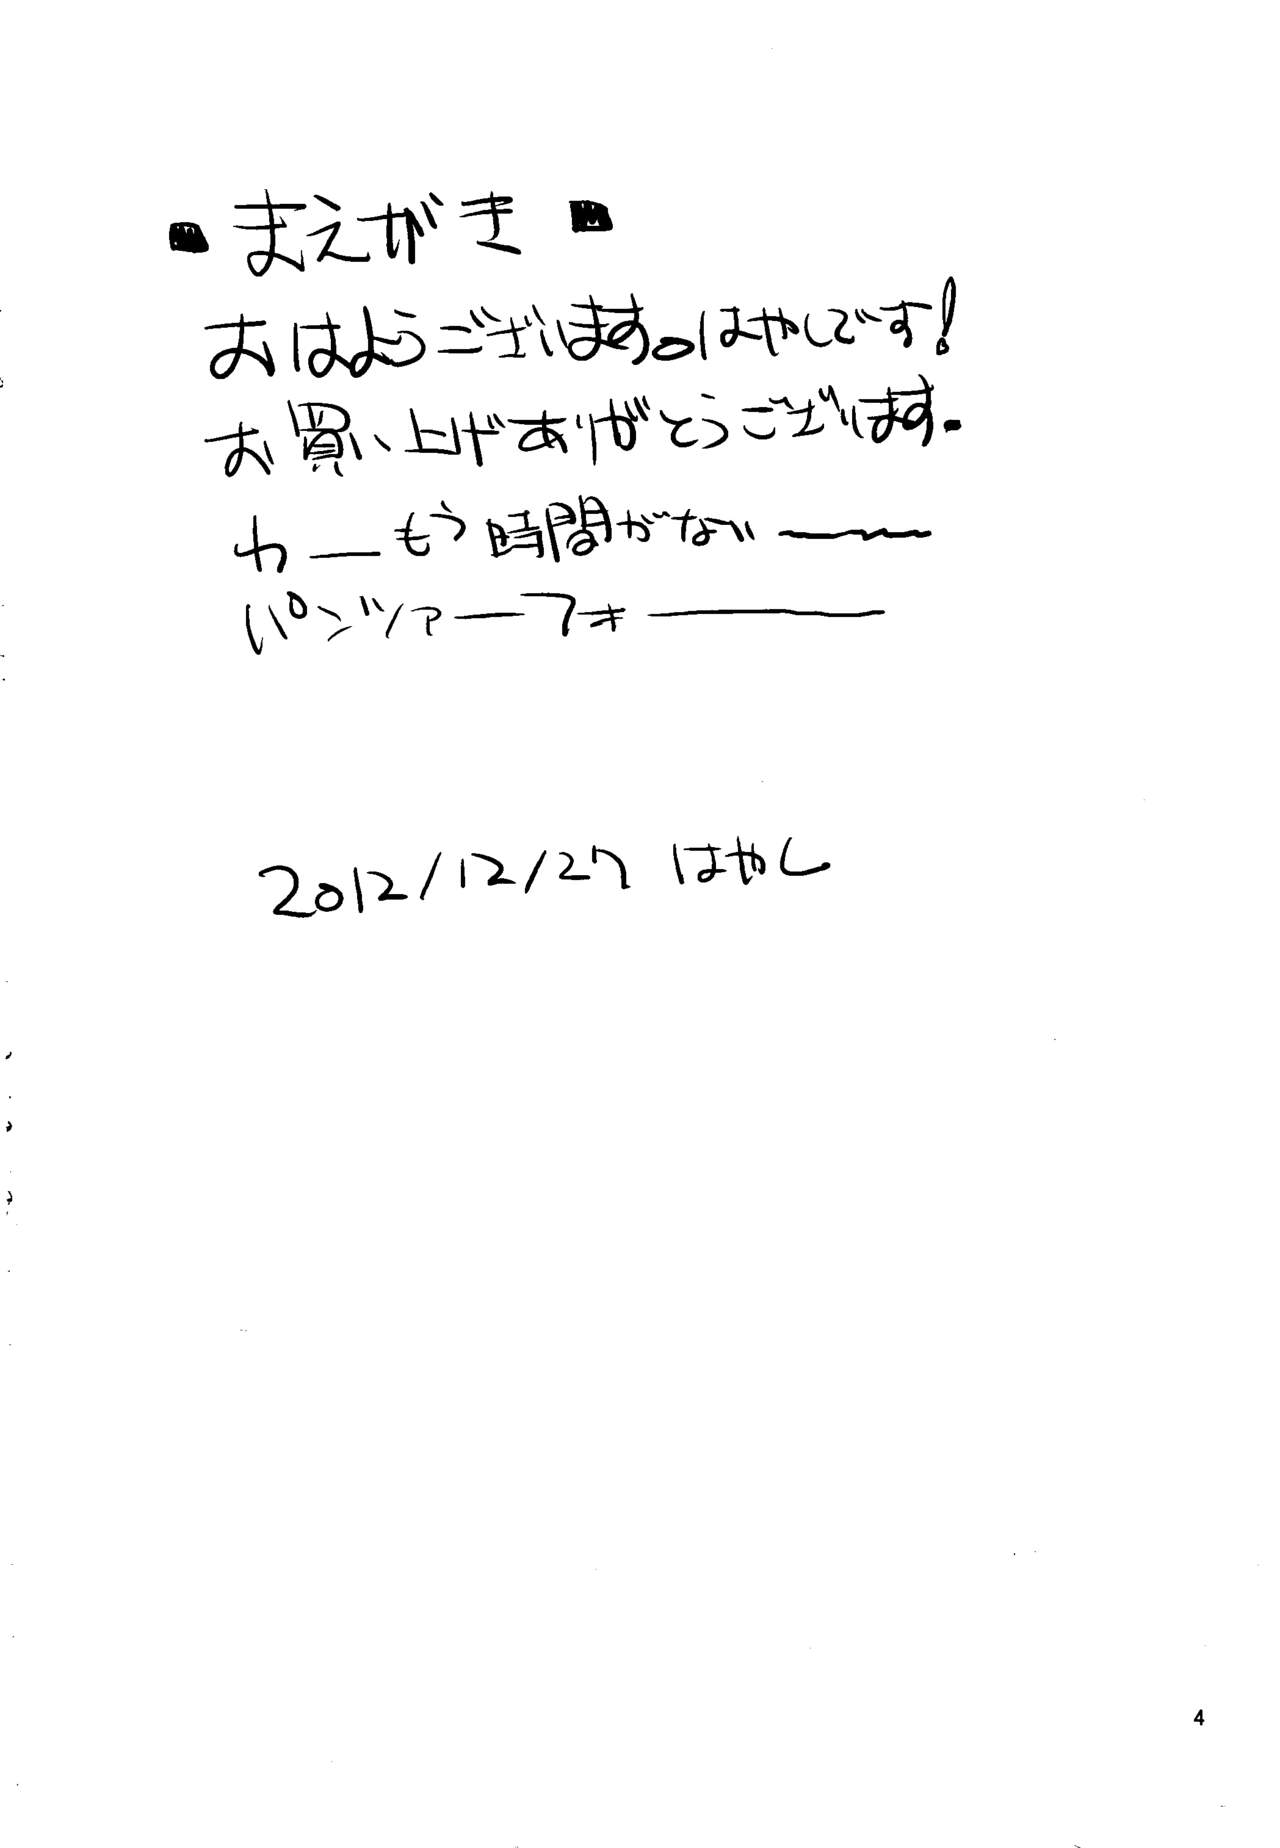 ■まえがき■
おはようございます。はやしです!
お買い上げありがとうございます。
わーもう時間がない〜
パンツァーフォー
2012/12/27 はやし
4